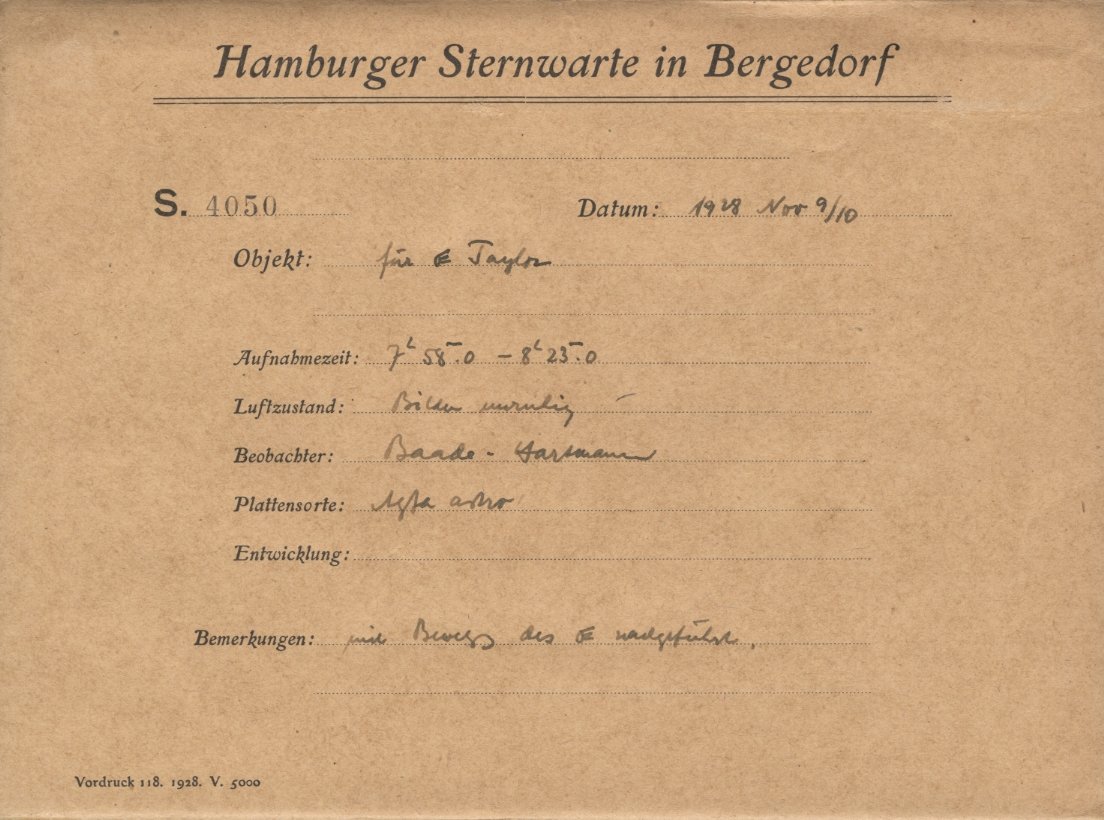 Hamburger Sternwarte in Bergedorf
S. 4050
Datum: 1928 Nov 9/10
Objekt: für Taylor
Aufnahmezeit: 7h 58m.0 – 8h 23m.0
Luftzustand: Bilder unruhig
Beobachter: Baade - Hartmann
Plattensorte: Agfa astro
Entwicklung:
Bemerkungen: mit Bewegg des nachgeführt.
Vordruck 118. 1928. V. 5000